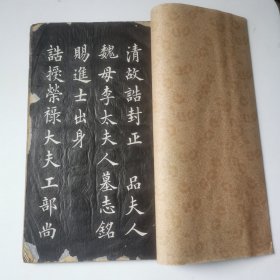 清故誥封正 品夫人
魏母李太夫人墓志銘
賜進士出身
誥授榮祿大夫工部尚